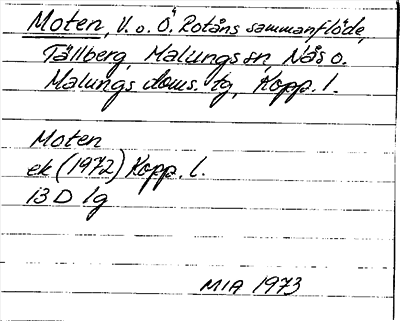 Moten, V. o. Ö. Rotåns sammanflöde,
Tällberg, Malungs sn, Nås o.
Malungs doms. tg, Kopp. l.
Moten
ek (1972) Kopp. l.
13 D 1g
MIA 1973